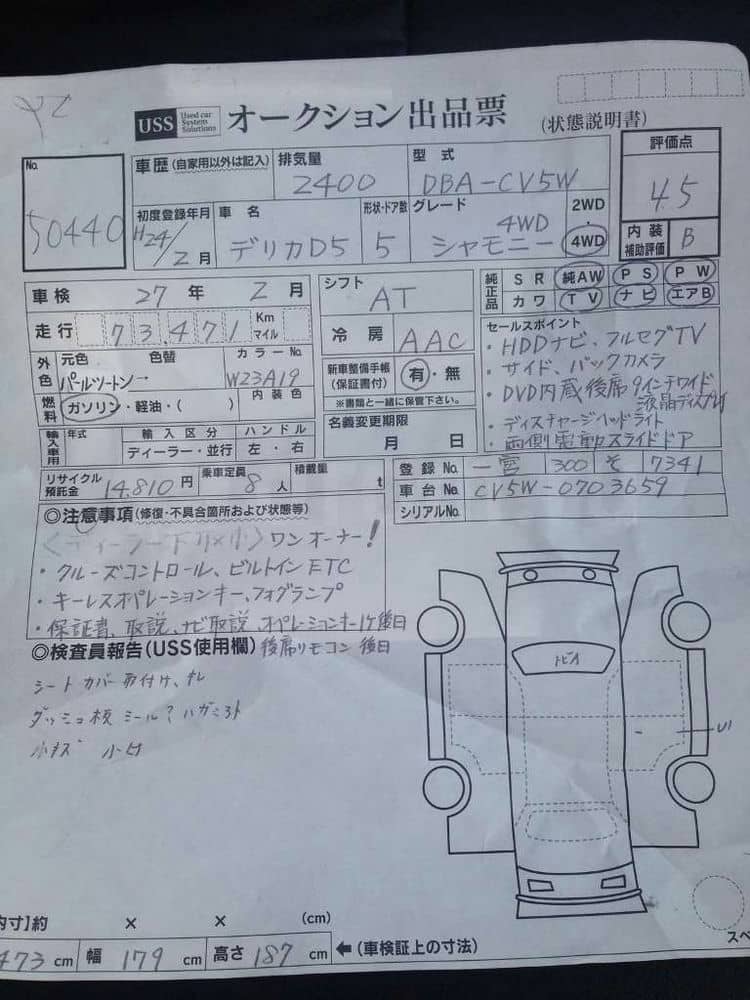 USS Used car System Solutions オークション出品票 (状態説明書)
No. 50440
車歴 (自家用以外は記入)
排気量 2400
型式 DBA-CV5W
評価点 4.5
初度登録年月 H24/2月
車名 デリカD5
形状・ドア数 5
グレード 4WD シャモニー
2WD・4WD
内装補助評価 B
車検 27年 2月
シフト AT
純正品 SR 純AW PS PW
カワ TV ナビ エアB
走行 73,471 Km マイル
冷房 AAC
セールスポイント
・HDDナビ、フルセグTV
・サイド、バックカメラ
・DVD内蔵後席9インチワイド
液晶ディスプレイ
・ディスチャージヘッドライト
・両側電動スライドドア
外色 元色 色替 カラーNo.
パールツートン→ W23A19
新車整備手帳(保証書付) 有・無
※書類と一緒に保管下さい。
燃料 ガソリン・軽油・( ) 内装色
名義変更期限 月 日
輸入車用 年式 輸入区分 ハンドル
ディーラー・並行 左・右
登録No. 一宮 300 そ 7341
リサイクル預託金 14,810円 乗車定員 8人 積載量 t
車台No. CV5W-0703659
シリアルNo.
◎注意事項(修復・不具合箇所および状態等)
ワンオーナー!
・クルーズコントロール、ビルトインETC
・キーレスオペレーションキー、フォグランプ
・保証書、取説、ナビ取説、オペレーションキー1ケ後日
◎検査員報告(USS使用欄) 後席リモコン 後日
シートカバー取付け、
小キズ 小凹
トビA
U1
内寸】約 × × (cm)
473cm 幅 179cm 高さ 187cm ←(車検証上の寸法)
スペ